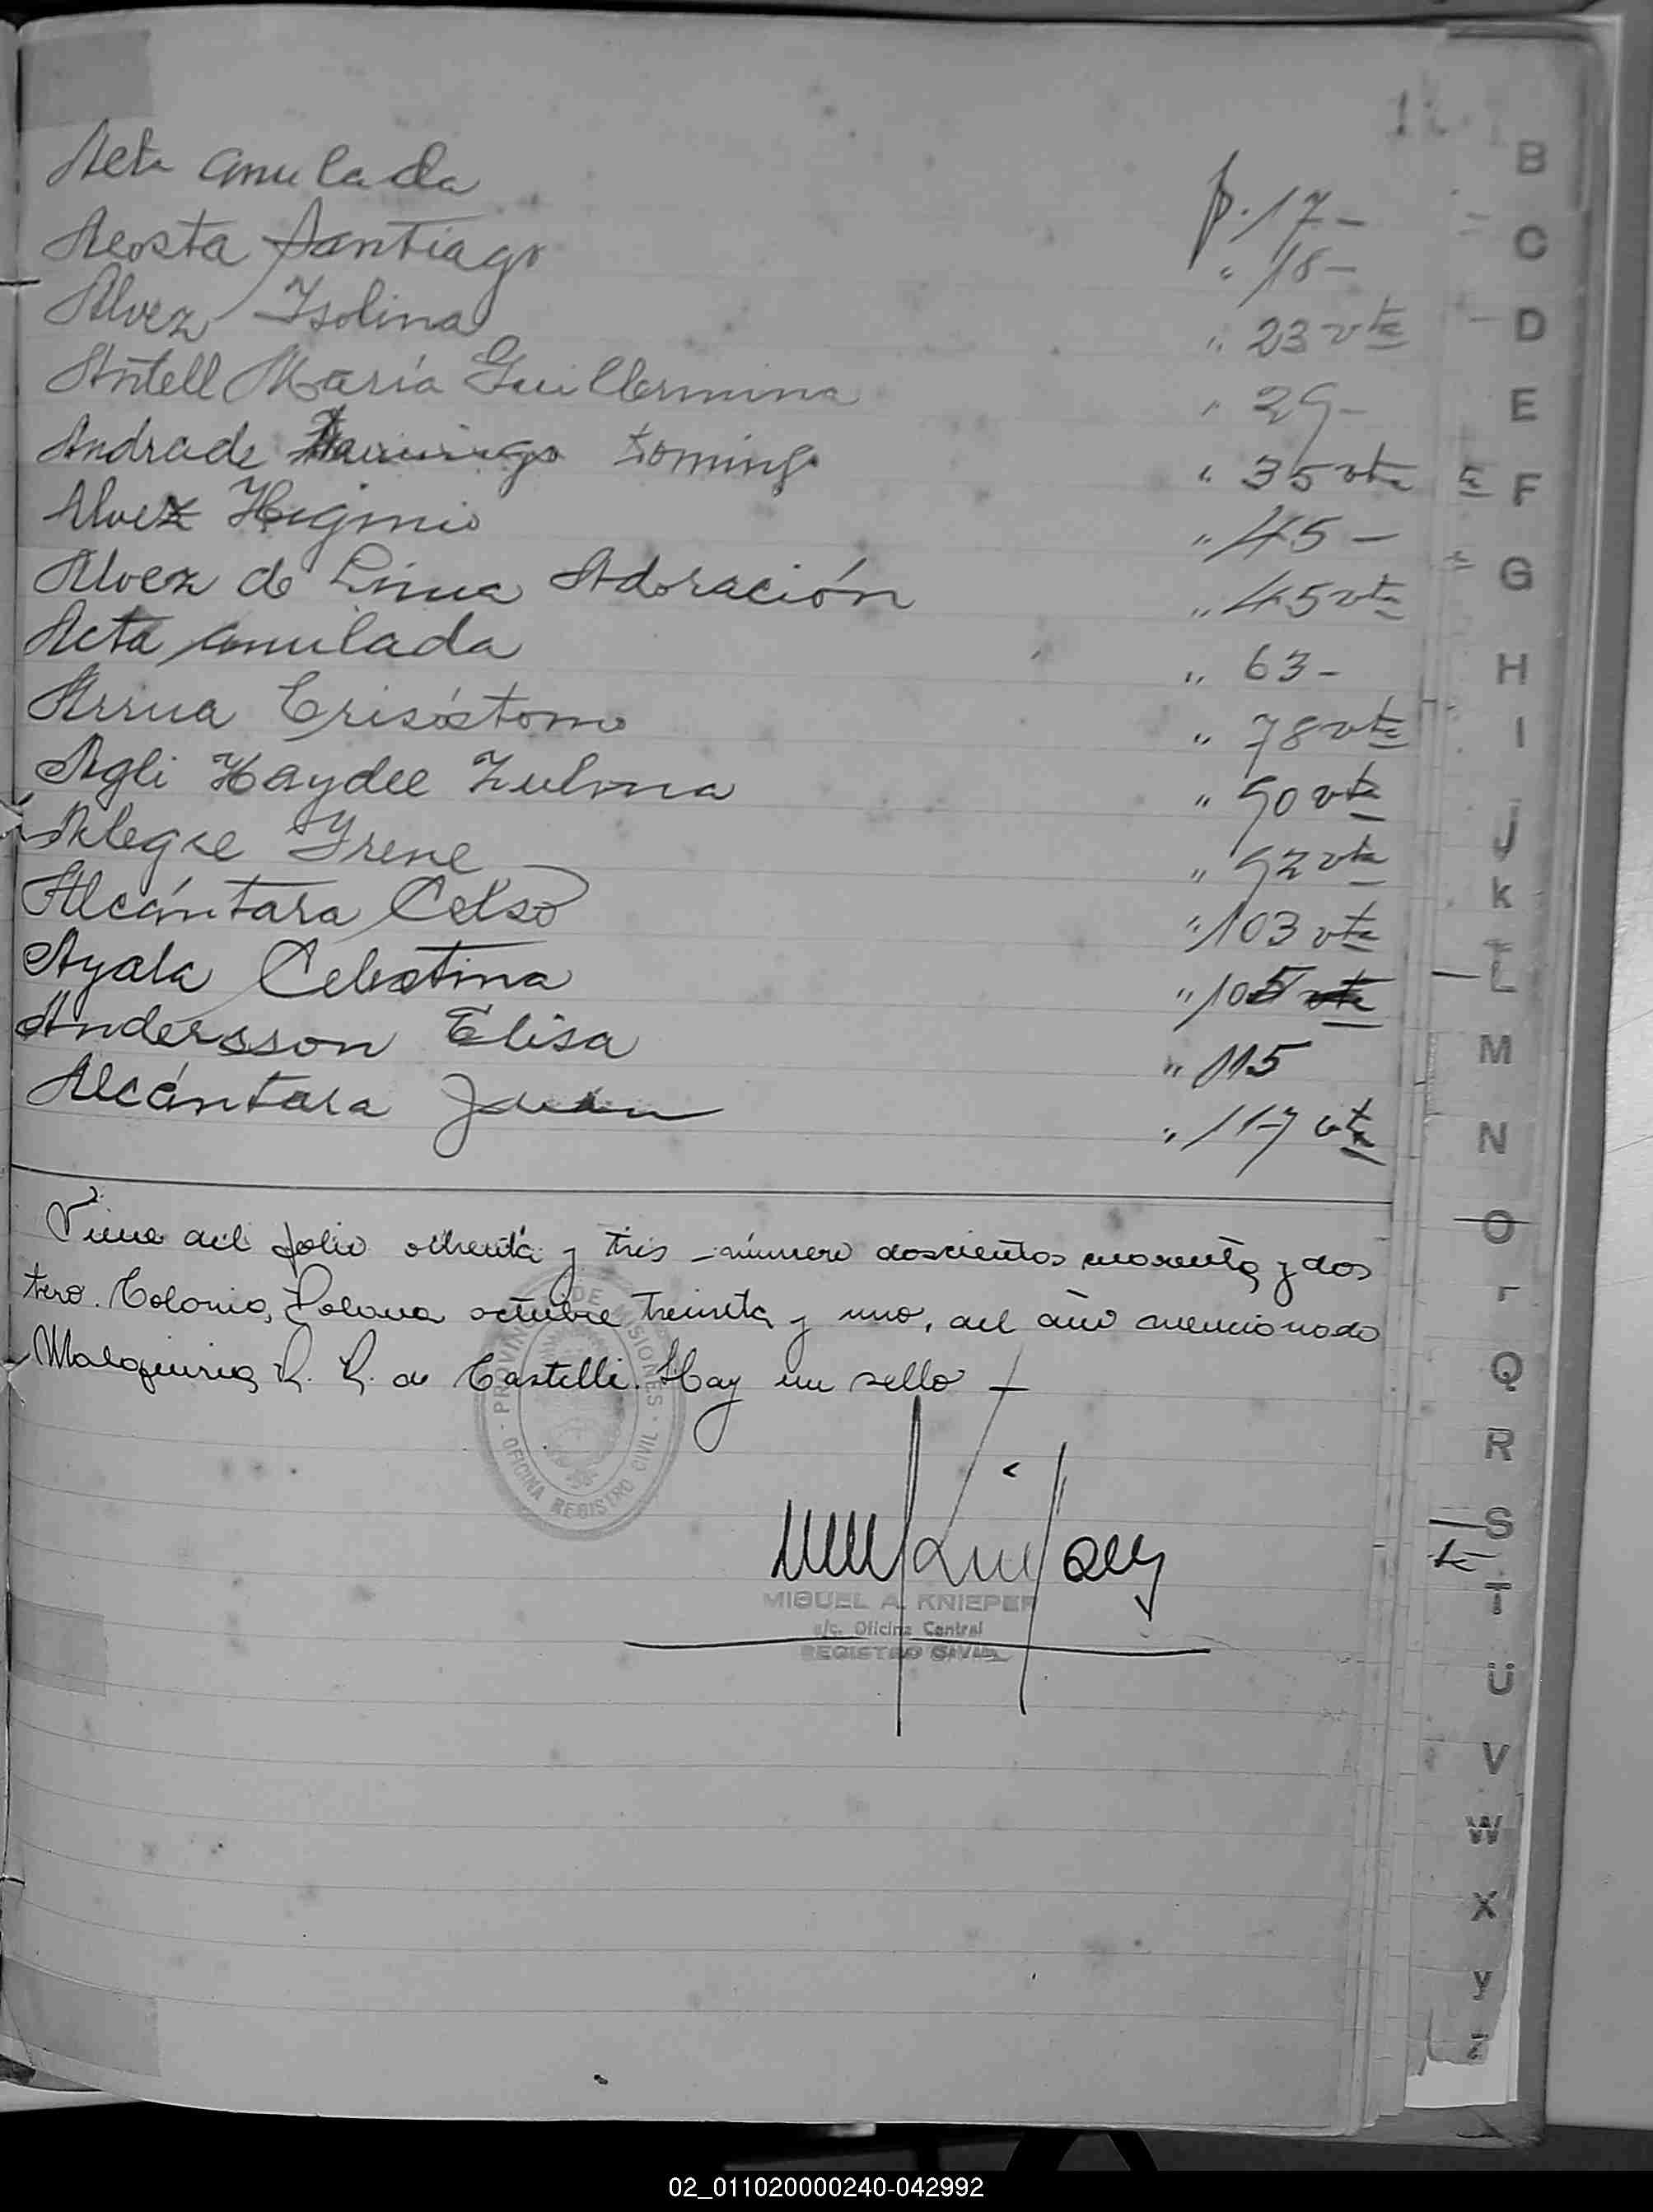 Acta anulada f. 17 –
Acosta Santiago " 18 –
Alvez Isolina " 23 vta
Antell María Guillermina " 29 –
Andrade Domingo " 35 vta
Alvez Higinio " 45 –
Alvez de Lima Adoración " 45 vta
Acta anulada " 63 –
Arrua Crisóstomo " 78 vta
Agli Haydee Zulma " 90 vta
Alegre Yrene " 92 vta
Alcántara Celso " 103 vta
Ayala Celestina " 105 vta
Andersson Elisa " 115
Alcántara Juan " 117 vta
Viene del folio ochenta y tres – número doscientos cuarenta y dos
Colonia Polana octubre treinta y uno, del año mencionado
R. R. de Castelli. Hay un sello –
PROVINCIA DE MISIONES
OFICINA REGISTRO CIVIL
MIGUEL A. KNIEPER
a/c. Oficina Central
REGISTRO CIVIL
B
C
D
E
F
G
H
I
J
K
L
M
N
O
Q
R
S
T
U
V
W
X
Y
Z
02_011020000240-042992